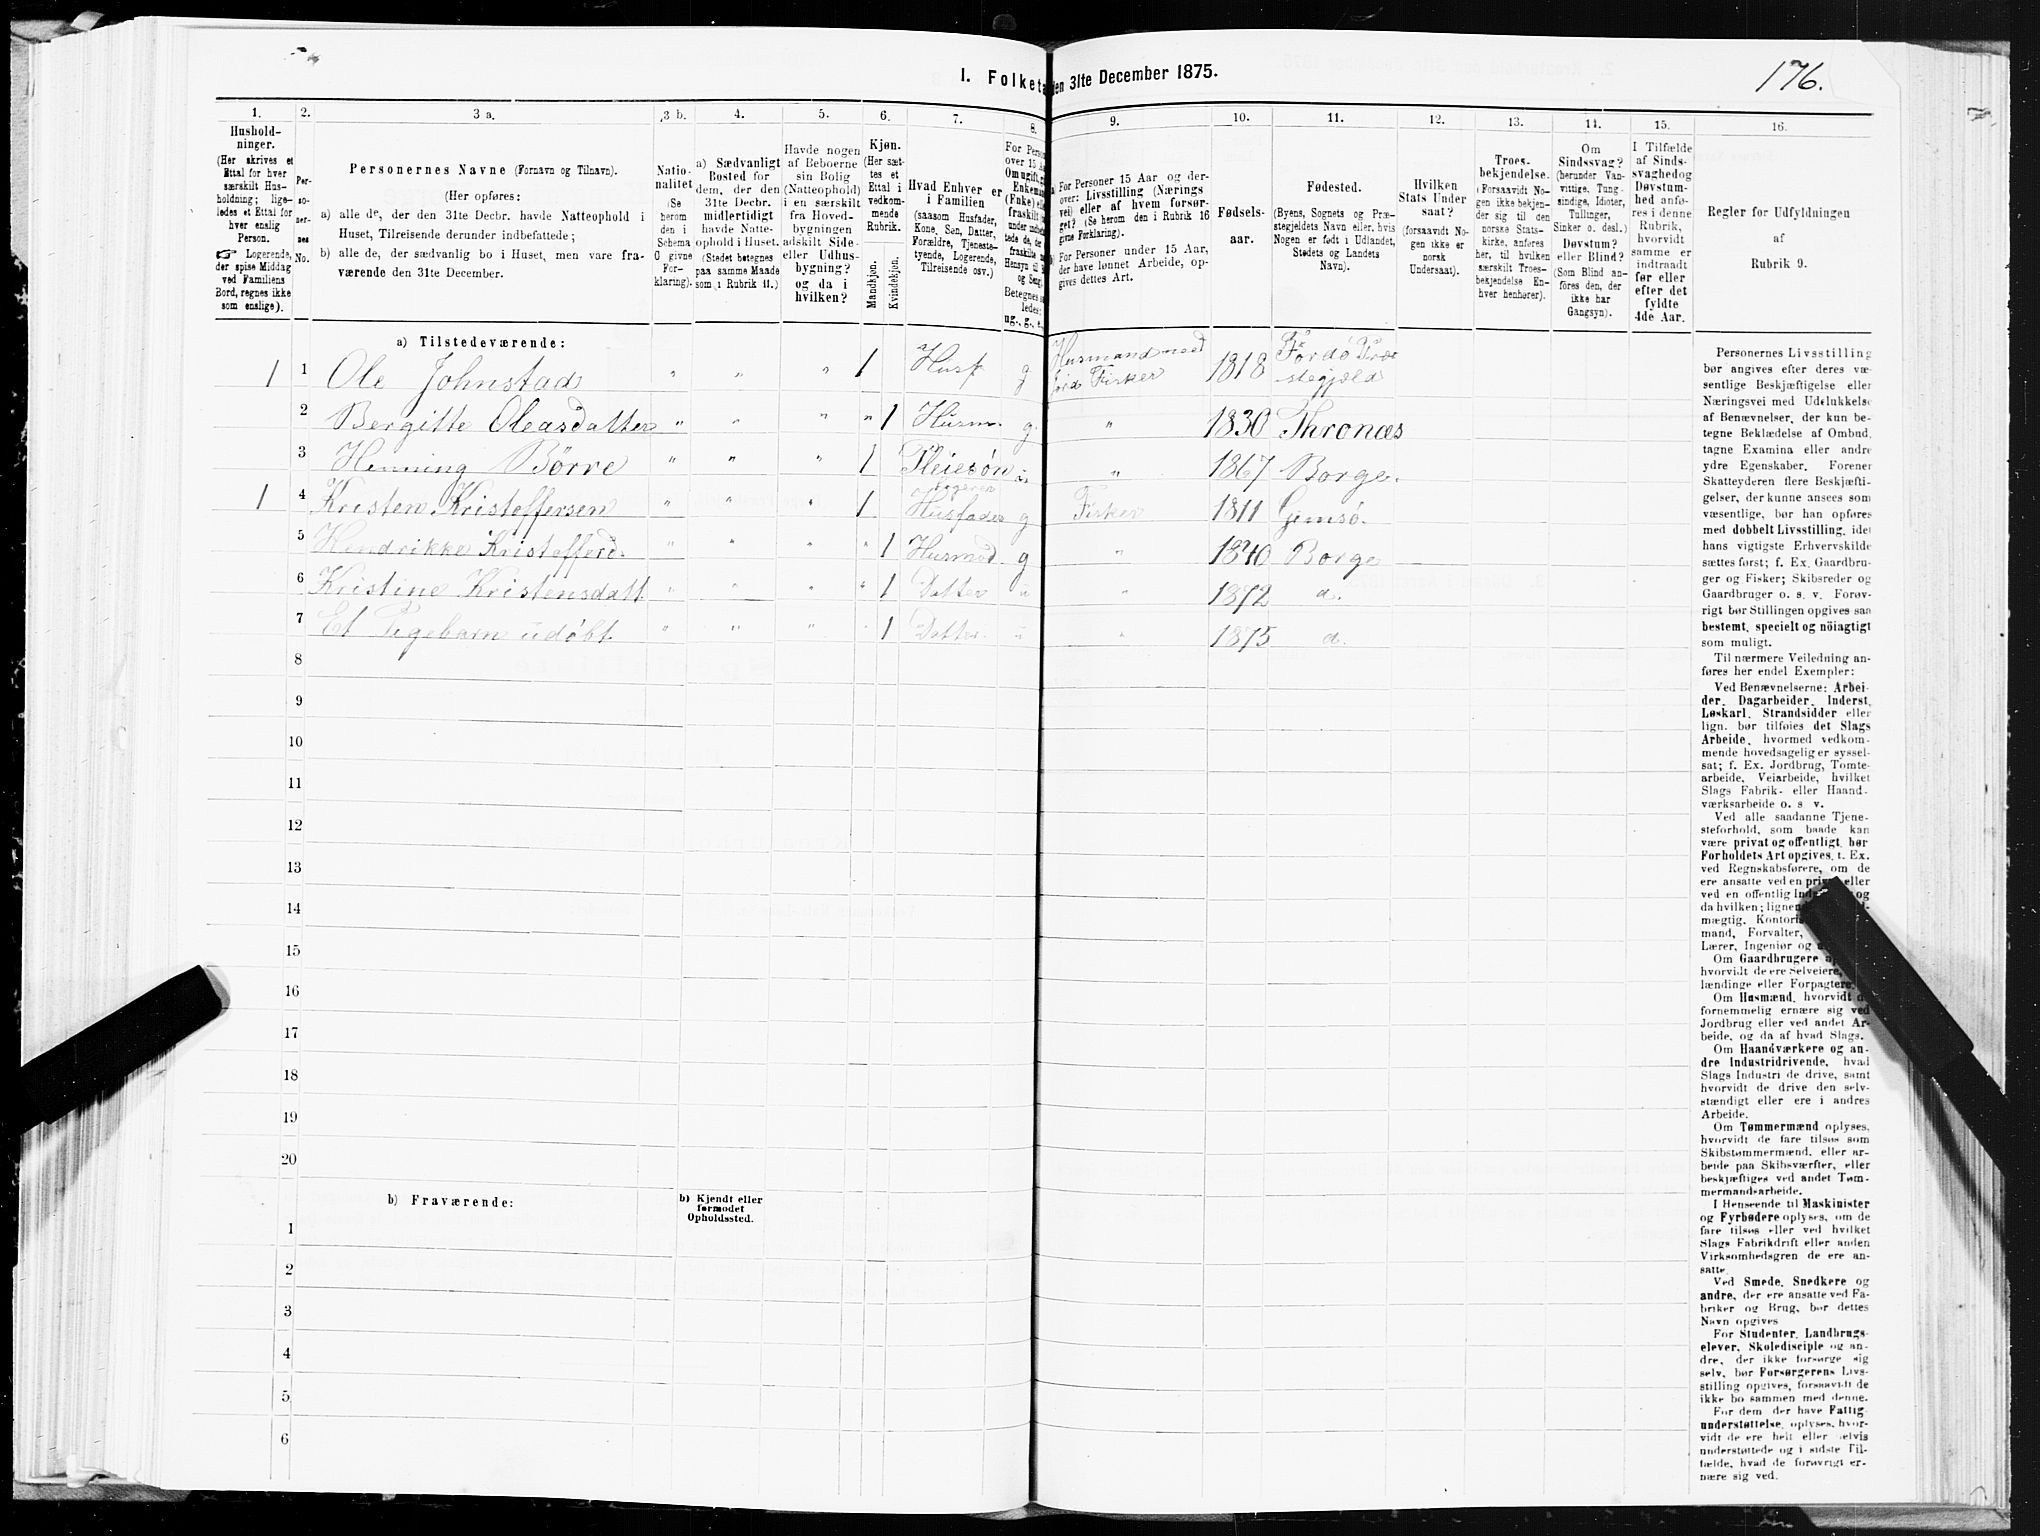 I. Folketæ
den 31te December 1875.
176.
1.
2.
3 a.
3 b.
4.
5.
6.
7.
8.
9.
10.
11.
12.
13.
14.
15.
16.
Hushold-
ninger.
(Her skrives et
Ettal for hver
særskilt Hus-
holdning; lige-
ledes et Ettal for
hver enslig
Person.
☞ Logerende,
der spise Middag
ved Familiens
Bord, regnes ikke
som enslige).
Per-
so-
ner-
nes
No.
Personernes Navne (Fornavn og Tilnavn).
(Her opføres:
a) alle de, der den 31te Decbr. havde Natteophold i
Huset, Tilreisende derunder indbefattede;
b) alle de, der sædvanlig bo i Huset, men vare fra-
værende den 31te December.
Natio-
nalitet
(Se
herom
den i
Schema
O givne
For-
klaring).
a) Sædvanligt
Bosted for
dem, der den
31te Decbr.
midlertidigt
havde Natte-
ophold i Huset.
(Stedet betegnes
paa samme Maade
som i Rubrik 11.)
Havde nogen
af Beboerne
sin Bolig
(Natteophold)
i en særskilt
fra Hoved-
bygningen
adskilt Side-
eller Udhus-
bygning?
og da i
hvilken?
Kjøn.
(Her sæt-
tes et
Ettal i
vedkom-
mende
Rubrik.
Mandkjøn.
Kvindekjøn.
Hvad Enhver er
i Familien
(saasom Husfader,
Kone, Søn, Datter,
Forældre, Tjeneste-
tyende, Logerende,
Tilreisende osv.)
For Person
over 15 Aa
Om ugift, g
Enkeman
(Enke) elle
fraskilt
ug., g., e.,
For Personer 15 Aar og der-
over: Livsstilling (Nærings
vei) eller af hvem forsør-
get? (Se herom de i Rubrik 16
givne Forklaring).
For Personer under 15 Aar,
der have lønnet Arbeide, op-
gives dettes Art.
Fødsels-
aar.
Fødested.
(Byens, Sognets og Præ-
stegjeldets Navn eller, hvis
Nogen er født i Udlandet,
Stedets og Landets
Navn).
Hvilken
Stats Under
saat?
(forsaavidt No-
gen ikke er
norsk
Undersaat).
Troes-
bekjendelse.
(Forsaavidt No-
gen ikke bekjen-
der sig til den
norske Stats-
kirke, anføres
her, til hvilken
særskilt Troes-
bekjendelse En-
hver henhører).
Om
Sindssvag?
(herunder Van-
vittige, Tung-
sindige, Idioter,
Tullinger,
Sinker o. desl.)
Døvstum?
eller Blind?
(Som Blind an-
føres den, der
ikke har
Gangsyn).
I Tilfælde
af Sinds-
svaghed og
Døvstum-
hed anfø-
res i denne
Rubrik,
hvorvidt
samme er
indtraadt
før eller
efter det
fyldte
4de Aar.
Regler for Udfyldningen
af
Rubrik 9.
a) Tilstedeværende:
1 1 Ole Johnstad " " " 1 Husf g Husmand med jord Fisker 1818 Fordø Præstegjeld
2 Bergitte Oleasdatter " " " " 1 Husm. g. " 1830 Thronæs
3 Henning Børre " " " 1 Pleiesøn u " 1867 Borge.
1 4 Kristen Kristeffersen " " " 1 Logerer Husfader g Fisker 1811 Gimsø.
5 Hendrikke Kristefferd. " " " " 1 Husmod g " 1840 Borge
6 Kristine Kristensdatt " " " " 1 Datter u " 1872 d.
7 Et Pigebarn udøbt " " " " 1 Datter. u " 1875 d.
8
9
10
11
12
13
14
15
16
17
18
19
20
b) Fraværende:
b) Kjendt eller
formodet
Opholdssted.
1
2
3
4
5
6
Personernes Livsstilling
bør angives efter deres væ-
sentlige Beskjæftigelse eller
Næringsvei med Udelukkelse
af Benævnelser, der kun be-
tegne Beklædelse af Ombud,
tagne Examina eller andre
ydre Egenskaber. Forener
Skatteyderen flere Beskjæfti-
gelser, der kunne ansees som
væsentlige, bør han opføres
med dobbelt Livsstilling, idet
hans vigtigste Erhvervskilde
sættes først; f. Ex. Gaardbru-
ger og Fisker; Skibsreder og
Gaardbruger o. s. v. Forøv-
rigt bør Stillingen opgives saa
bestemt, specielt og nöiagtigt
som muligt.
Til nærmere Veiledning an-
føres her endel Exempler:
Ved Benævnelserne: Arbei-
der, Dagarbeider, Inderst,
Løskarl, Strandsidder eller
lign. bør tilføies det Slags
Arbeide, hvormed vedkom-
mende hovedsagelig er syssel-
sat; f. Ex. Jordbrug, Tomte-
arbeide, Veiarbeide, hvilket
Slags Fabrik- eller Haand-
værksarbeide o. s v.
Ved alle saadanne Tjene-
steforhold, som baade kan
være privat og offentligt, bør
Forholdets Art opgives, f. Ex.
ved Regnskabsførere, om de
ere ansatte ved en privat eller
ved en offentlig Ind og
da hvilken; lignen
mægtig, Kontor
mand, Forvalter,
Lærer, Ingeniør og
Om Gaardbrugere
hvorvidt de ere Selveiere,
lændinge eller Forpagtere.
Om Husmænd, hvorvidt de
fornemmelig ernære sig ved
Jordbrug eller ved andet Ar-
beide, og da af hvad Slags.
Om Haandværkere og an-
dre Industridrivende, hvad
Slags Industri de drive, samt
hvorvidt de drive den selv-
stændigt eller ere i andres
Arbeide.
Om Tømmermænd oplyses,
hvorvidt de fare tilsøs som
Skibstømmermænd, eller ar-
beide paa Skibsværfter, eller
beskjæftiges ved andet Tøm-
mermandsarbeide.
I Henseende til Maskinister
og Fyrbødere oplyses, om de
fare tilsøs eller ved hvilket
Slags Fabrikdrift eller anden
Virksomhedsgren de ere an-
satte.
Ved Smede, Snedkere og
andre, der ere ansatte ved Fa-
briker og Brug, bør dettes
Navn opgives
For Studenter, Landbrugs-
elever, Skoledisciple og an-
dre, der ikke forsørge sig
selv, bør Forsørgerens Livs-
stilling opgives, forsaavidt de
ikke bo sammen med denne.
For dem der have Fattig
understøttelse, oplyses, hvor-
vidt de ere helt eller delvis
understøttede og i sidste Til-
fælde, hvad de forøvrigt er-
nære sig ved.